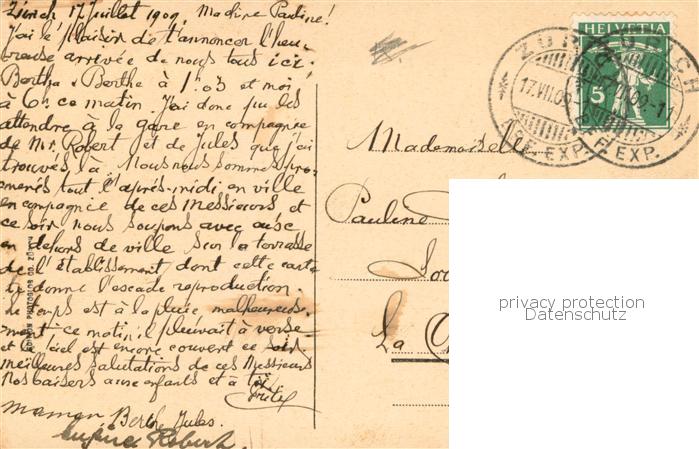 Zürich 17 Juillet 1909. Ma chère Pauline!
J'ai le plaisir de t'annoncer l'heu-
reuse arrivée de nous tous ici.
Bertha & Berthe à 1.03 et moi
à 6 h. ce matin. J'ai donc pu les
attendre à la gare en compagnie
de Mr. Robert et de Jules que j'ai
trouvés là. Nous nous sommes pro-
menés tout l'après-midi en ville
en compagnie de ces Messieurs et
ce soir nous soupons avec eux
en dehors de ville sur la terrasse
de l'établissement dont cette carte
te donne l'exacte reproduction.
Le temps est à la pluie malheureuse-
ment ce matin il pleuvait à verse
et le ciel est encore couvert ce soir.
meilleures salutations de ces Messieurs
Nos baisers aux enfants et à toi.
Fritz
maman Berthe Jules.
Eugène Robert
HELVETIA
5
ZÜRICH
17.VII.09
BRF. EXP.
Mademoiselle
Pauline
La
privacy protection
Datenschutz